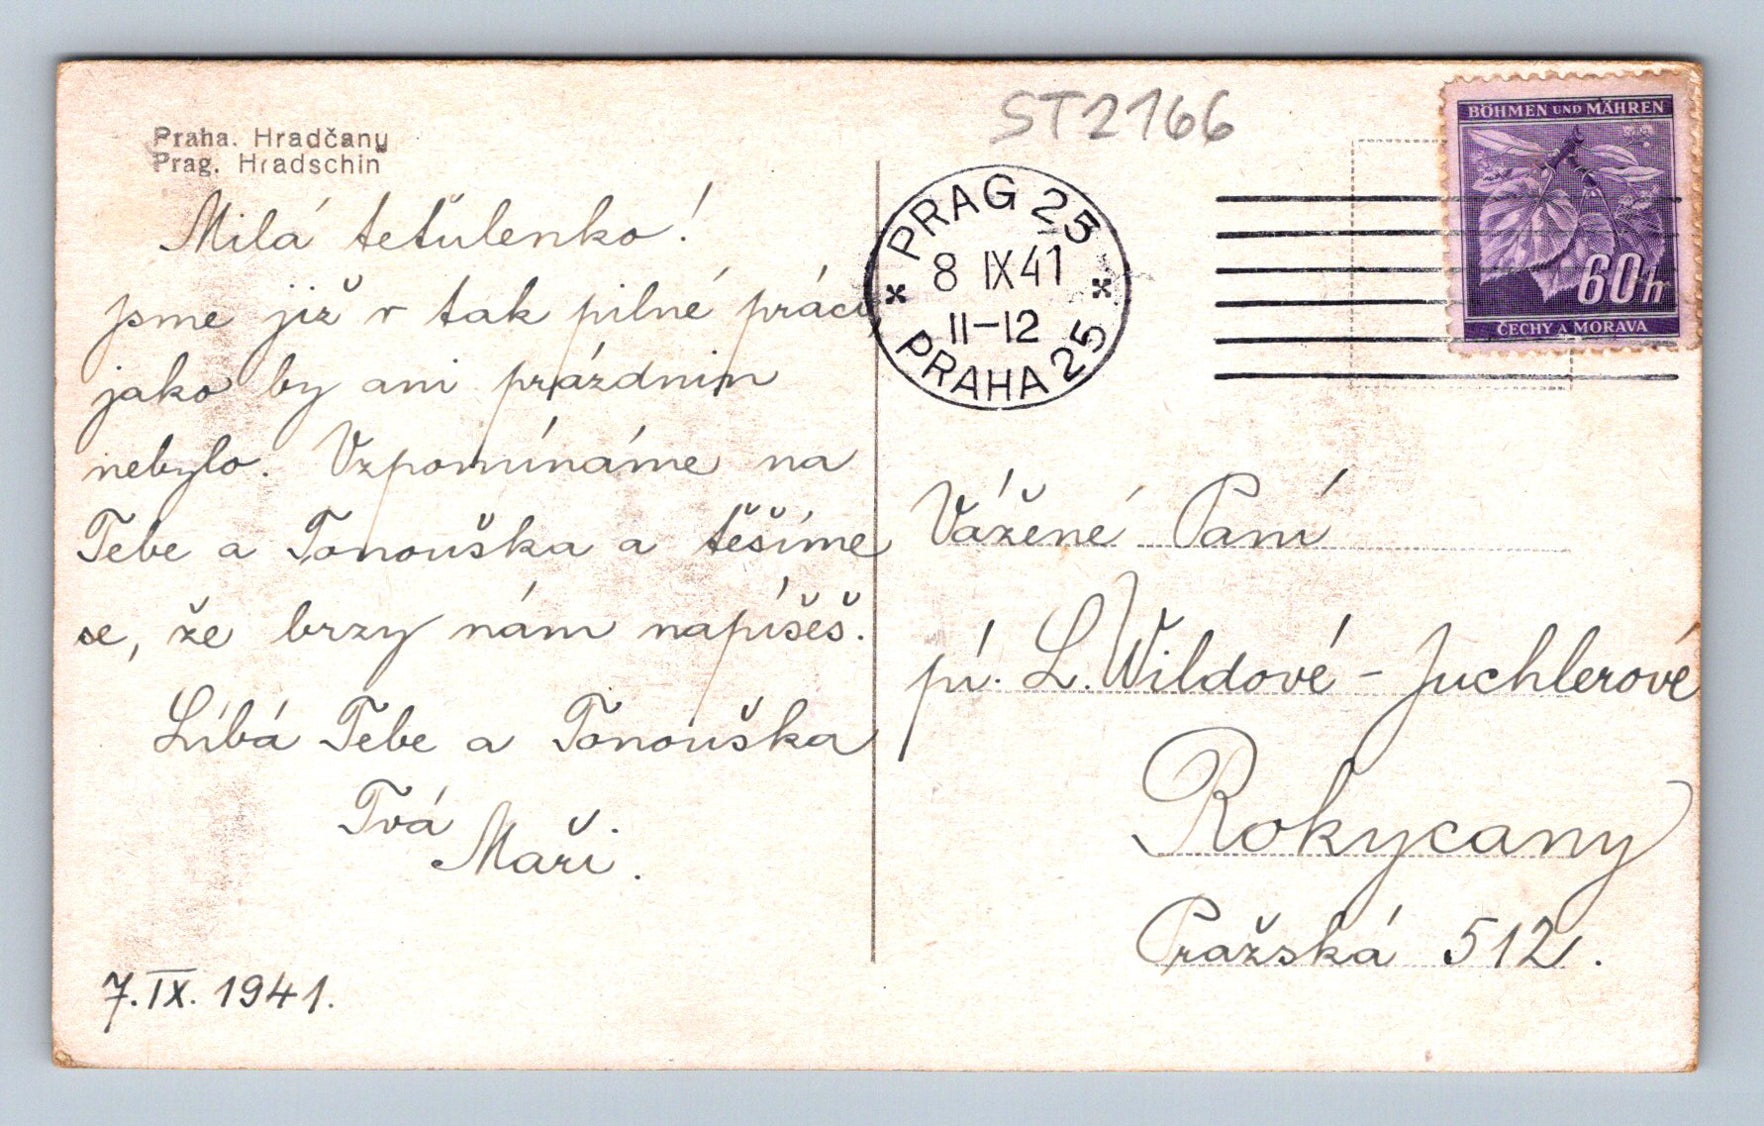 Praha. Hradčany
Prag. Hradschin
ST2166
BÖHMEN UND MÄHREN
60h
ČECHY A MORAVA
PRAG 25
8 IX 41
11-12
PRAHA 25
Milá teťulenko!
jsme již v tak pilné práci
jako by ani prázdnin
nebylo. Vzpomínáme na
Tebe a Tonouška a těšíme
se, že brzy nám napíšeš.
Líbá Tebe a Tonouška
Tvá
Maři.
7. IX. 1941.
Vážené Paní
pí. L. Wildové - Juchlerové
Rokycany
Pražská 512.